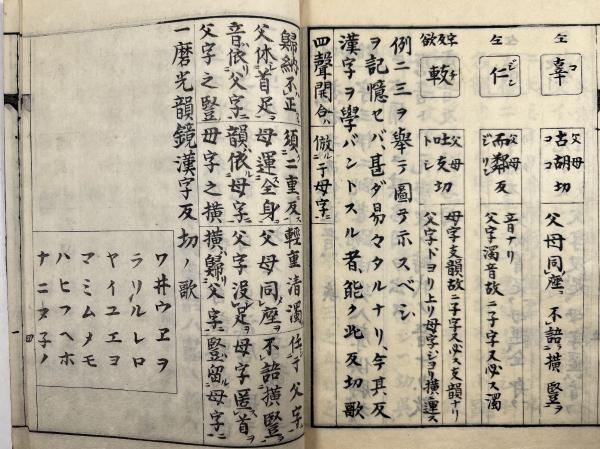 全 辜 コ 古胡切 ココ 父母 父母同座ニ不論横豎ヲ
全 仁 ジン 而鄰反 ジリン 父母 音ナリ
父字濁音故ニ子字又必ス濁
吐支切 トシ 父母 母字支韻故ニ子字又必ス支韻ナリ
例ニ三ヲ舉テ圖ヲ示スベシ
ヲ記憶セバ、甚ダ易々タルナリ、今其反
漢字ヲ學バンドスル者、能ク此反切歌
四聲開合ハ倣ル于母字ニ
歸納不正 須ニ二重反ス 輕重清濁 任ス于父字ニ
父休首足ヲ 母運全身ヲ 父母同座ニ 不論横豎ヲ
音依リ父字ニ 韻依ル母字ニ 父字没足ヲ 母字匿首ヲ
父字之豎 母字之横 横歸父字ニ 豎留母字ニ
一磨光韻鏡漢字反切ノ歌
ワ井ウヱヲ
ラリルレロ
ヤイユエヨ
マミムメモ
ハヒフヘホ
ナニヌ子ノ
四